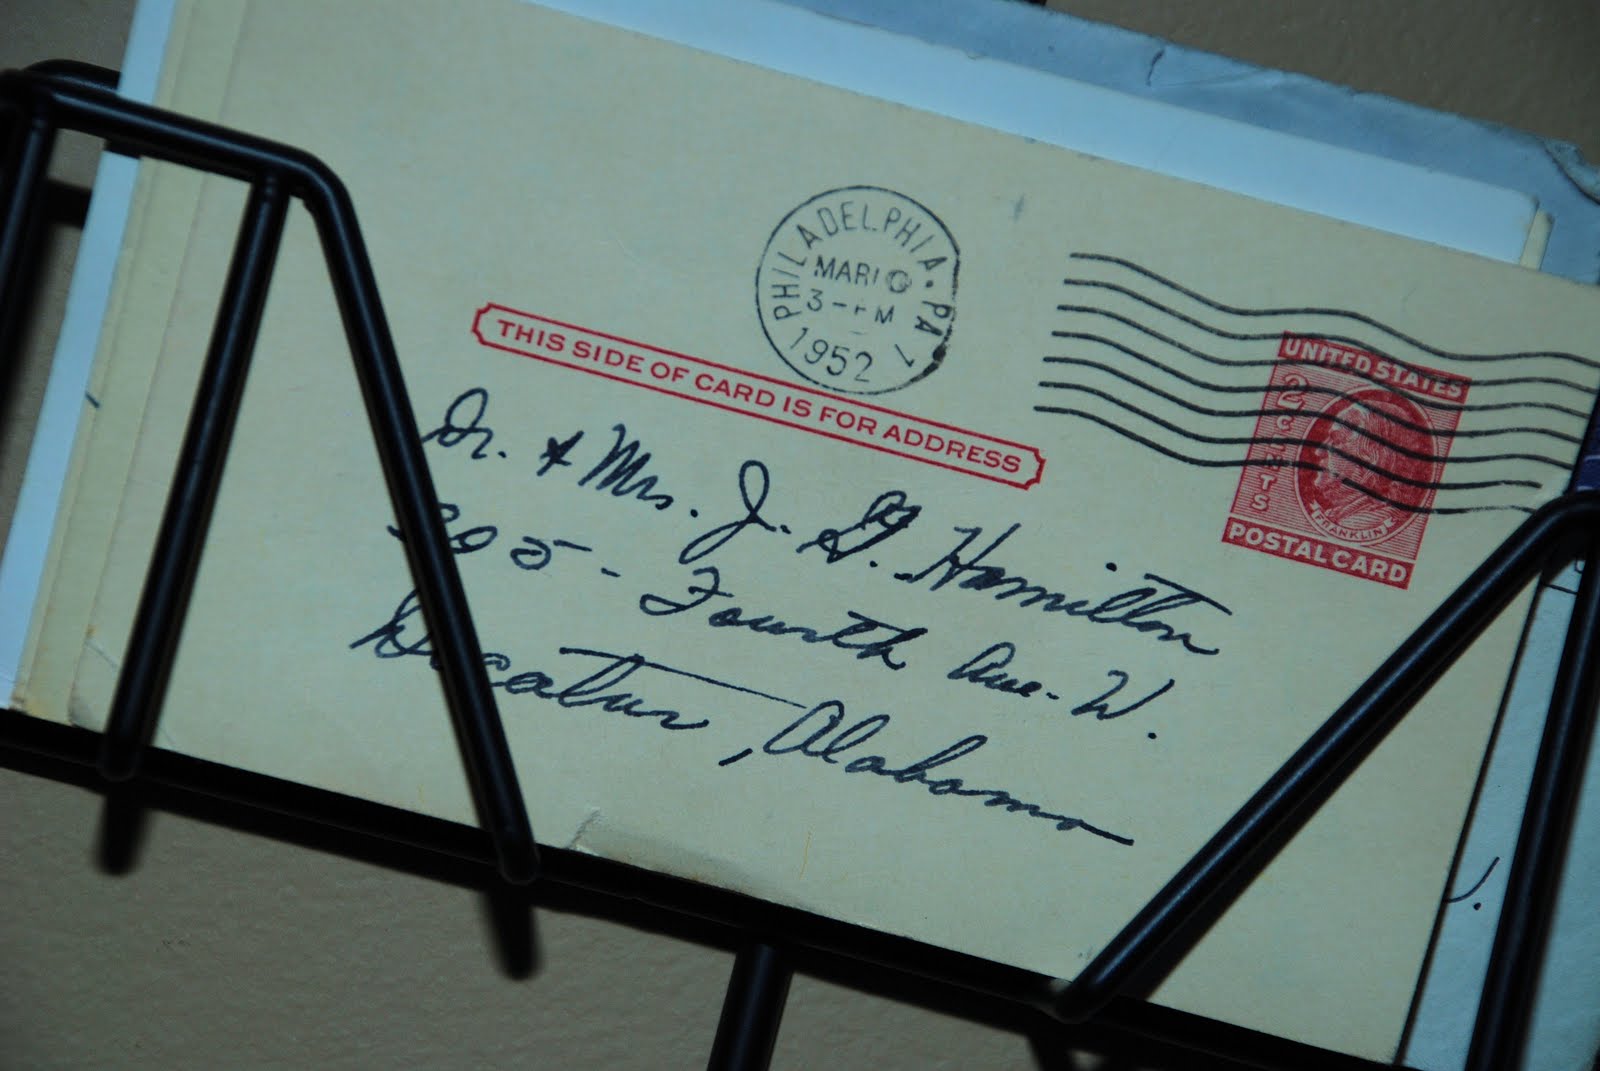 PHILADELPHIA. PA 1
MAR 10
3-PM
1952
THIS SIDE OF CARD IS FOR ADDRESS
UNITED STATES
2 CENTS
FRANKLIN
POSTAL CARD
Dr. & Mrs. J. G. Hamilton
05 - Fourth Ave. W.
Decatur, Alabama